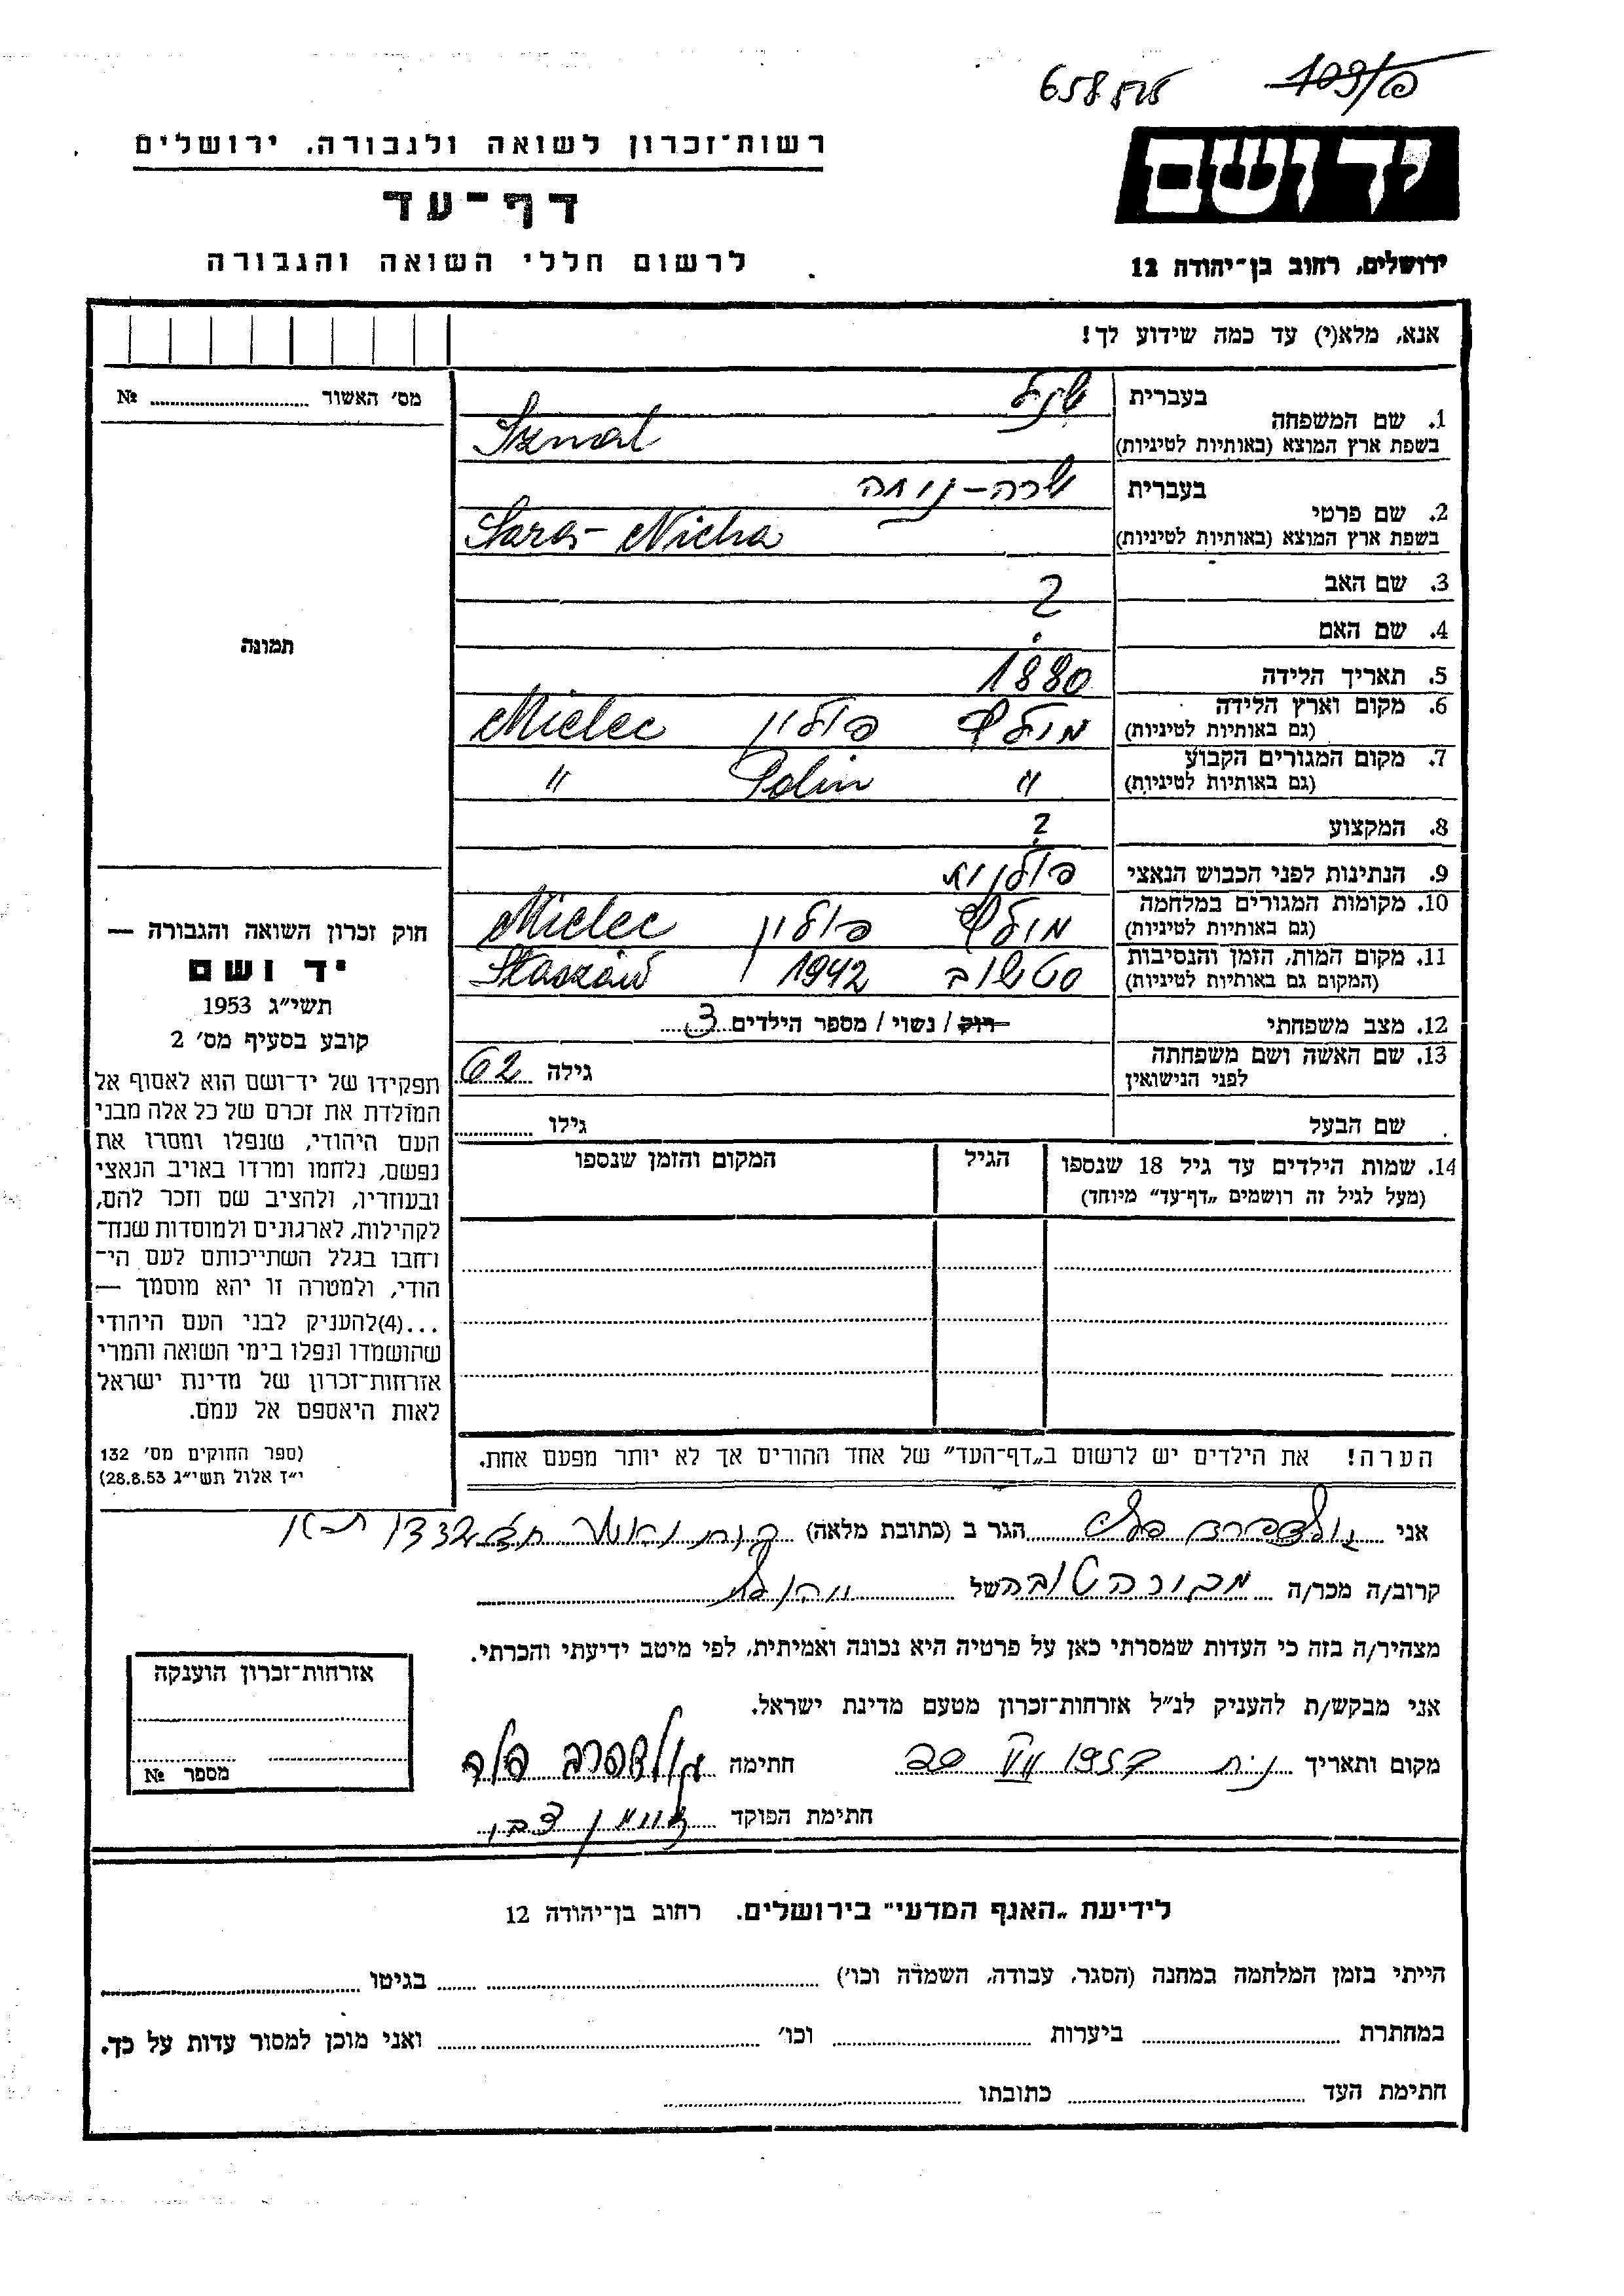 658
109/פ
יד ושם
ירושלים, רחוב בן־יהודה 12
רשות־זכרון לשואה ולגבורה, ירושלים
דף־עד
לרשום חללי השואה והגבורה
אנא, מלא(י) עד כמה שידוע לך!
מס׳ האשור ........ №
תמונה
1. שם המשפחה
בעברית
בשפת ארץ המוצא (באותיות לטיניות)
Sznal
2. שם פרטי
בעברית שרה-ניחה
בשפת ארץ המוצא (באותיות לטיניות) Sara-Nicha
3. שם האב ?
4. שם האם
5. תאריך הלידה 1880
6. מקום וארץ הלידה
(גם באותיות לטיניות) מילץ פולין Mielec
7. מקום המגורים הקבוע
(גם באותיות לטיניות) " Polin "
8. המקצוע ?
9. הנתינות לפני הכבוש הנאצי פולנית
10. מקומות המגורים במלחמה
(גם באותיות לטיניות) מילץ פולין Mielec
11. מקום המות, הזמן והנסיבות
(המקום גם באותיות לטיניות) סטשוב 1942 Staszów
12. מצב משפחתי רוק / נשוי / מספר הילדים 3
13. שם האשה ושם משפחתה
לפני הנישואין
גילה 62
שם הבעל
גילו
14. שמות הילדים עד גיל 18 שנספו
(מעל לגיל זה רושמים „דף־עד" מיוחד)
הגיל
המקום והזמן שנספו
הערה! את הילדים יש לרשום ב„דף־העד" של אחד ההורים אך לא יותר מפעם אחת.
חוק זכרון השואה והגבורה —
יד ושם
תשי״ג 1953
קובע בסעיף מס׳ 2
תפקידו של יד־ושם הוא לאסוף אל
המולדת את זכרם של כל אלה מבני
העם היהודי, שנפלו ומסרו את
נפשם, נלחמו ומרדו באויב הנאצי
ובעוזריו, ולהציב שם וזכר להם,
לקהילות, לארגונים ולמוסדות שנח־
רחבו בגלל השתייכותם לעם הי־
הודי, ולמטרה זו יהא מוסמך —
...(4)להעניק לבני העם היהודי
שהושמדו ונפלו בימי השואה והמרי
אזרחות־זכרון של מדינת ישראל
לאות היאספם אל עמם.
(ספר החוקים מס׳ 132
י״ז אלול תשי״ג 28.8.53)
אני גולדברג הגר ב (כתובת מלאה)
קרוב/ה מכר/ה מכורה טובה של
מצהיר/ה בזה כי העדות שמסרתי כאן על פרטיה היא נכונה ואמיתית, לפי מיטב ידיעתי והכרתי.
אני מבקש/ת להעניק לנ״ל אזרחות־זכרון מטעם מדינת ישראל.
מקום ותאריך 1957 VII חתימה גולדברג
חתימת הפוקד
אזרחות־זכרון הוענקה
מספר №
לידיעת „האגף המדעי" בירושלים. רחוב בן־יהודה 12
הייתי בזמן המלחמה במחנה (הסגר, עבודה, השמדה וכו׳) ........ בגיטו ........
במחתרת ........ ביערות ........ וכו׳ ........ ואני מוכן למסור עדות על כך.
חתימת העד ........ כתובתו ........